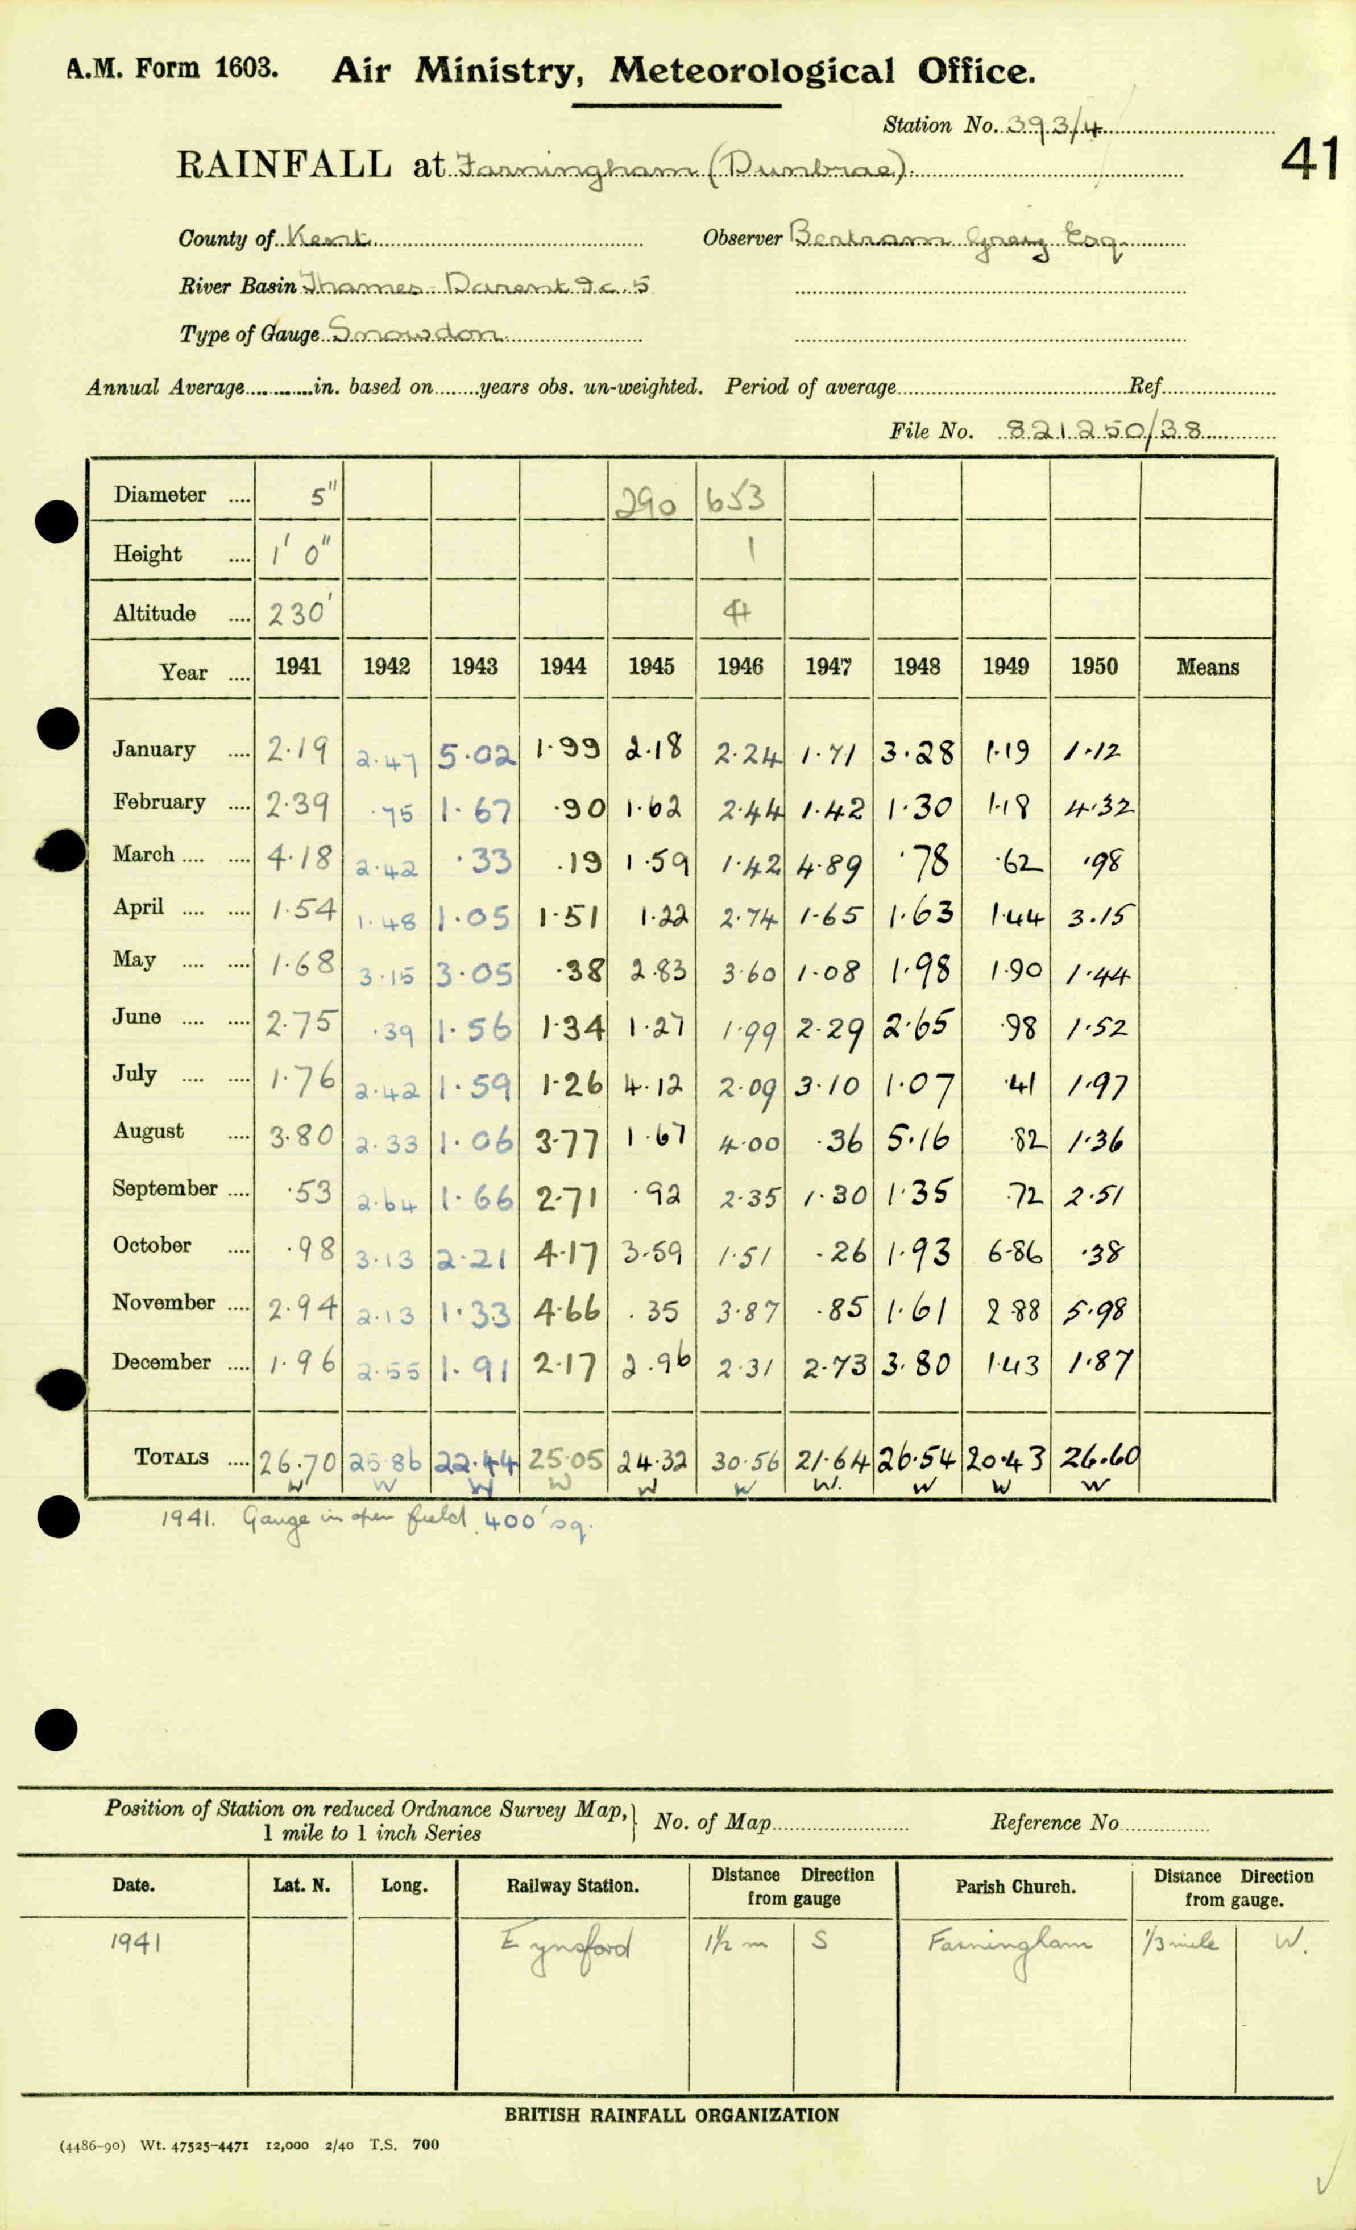 A.M. Form 1603. Air Ministry, Meteorological Office.
Station No. 393/4
41
RAINFALL at Farningham (Dunbrae)
County of Kent Observer Bertram Greig Esq.
River Basin Thames Darent 9c.5
Type of Gauge Snowdon
Annual Average............in. based on........years obs. un-weighted. Period of average Ref.
File No. 821250/38
Diameter .... 5" 290 653
Height .... 1' 0" 1
Altitude .... 230' 4
Year .... 1941 1942 1943 1944 1945 1946 1947 1948 1949 1950 Means
January .... 2.19 2.47 5.02 1.99 2.18 2.24 1.71 3.28 1.19 1.12
February .... 2.39 .75 1.67 .90 1.62 2.44 1.42 1.30 1.18 4.32
March .... .... 4.18 2.42 .33 .19 1.59 1.42 4.89 .78 .62 .98
April .... .... 1.54 1.48 1.05 1.51 1.22 2.74 1.65 1.63 1.44 3.15
May .... .... 1.68 3.15 3.05 .38 2.83 3.60 1.08 1.98 1.90 1.44
June .... .... 2.75 .39 1.56 1.34 1.27 1.99 2.29 2.65 .98 1.52
July .... .... 1.76 2.42 1.59 1.26 4.12 2.09 3.10 1.07 .41 1.97
August .... 3.80 2.33 1.06 3.77 1.67 4.00 .36 5.16 .82 1.36
September .... .53 2.64 1.66 2.71 .92 2.35 1.30 1.35 .72 2.51
October .... .98 3.13 2.21 4.17 3.59 1.51 .26 1.93 6.86 .38
November .... 2.94 2.13 1.33 4.66 .35 3.87 .85 1.61 2.88 5.98
December .... 1.96 2.55 1.91 2.17 2.96 2.31 2.73 3.80 1.43 1.87
TOTALS .... 26.70 25.86 22.44 25.05 24.32 30.56 21.64 26.54 20.43 26.60
W W W W W W W. W W W
1941. Gauge in open field 400' sq.
Position of Station on reduced Ordnance Survey Map, 1 mile to 1 inch Series } No. of Map Reference No
Date. Lat. N. Long. Railway Station. Distance Direction from gauge Parish Church. Distance Direction from gauge.
1941 Eynsford 1½ m S Farningham 1/3 mile W.
BRITISH RAINFALL ORGANIZATION
(4486-90) Wt. 47525-4471 12,000 2/40 T.S. 700